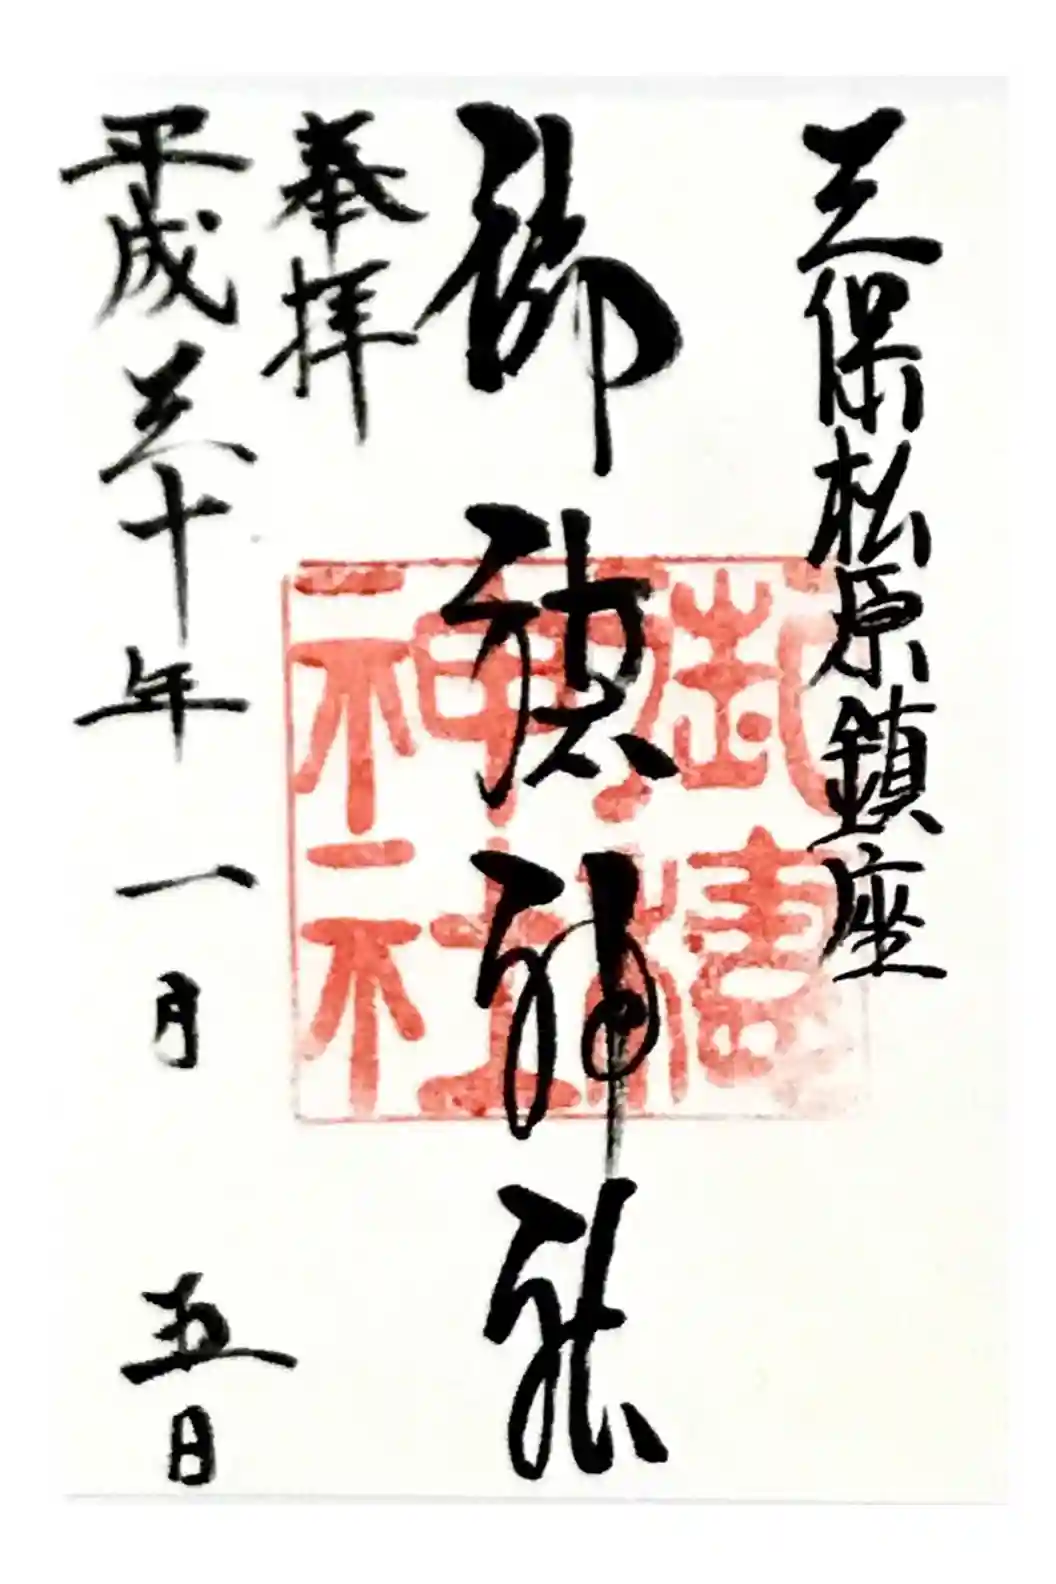 三保松原鎮座
御穂神社
奉拝
平成三十年一月五日
御穂
神社